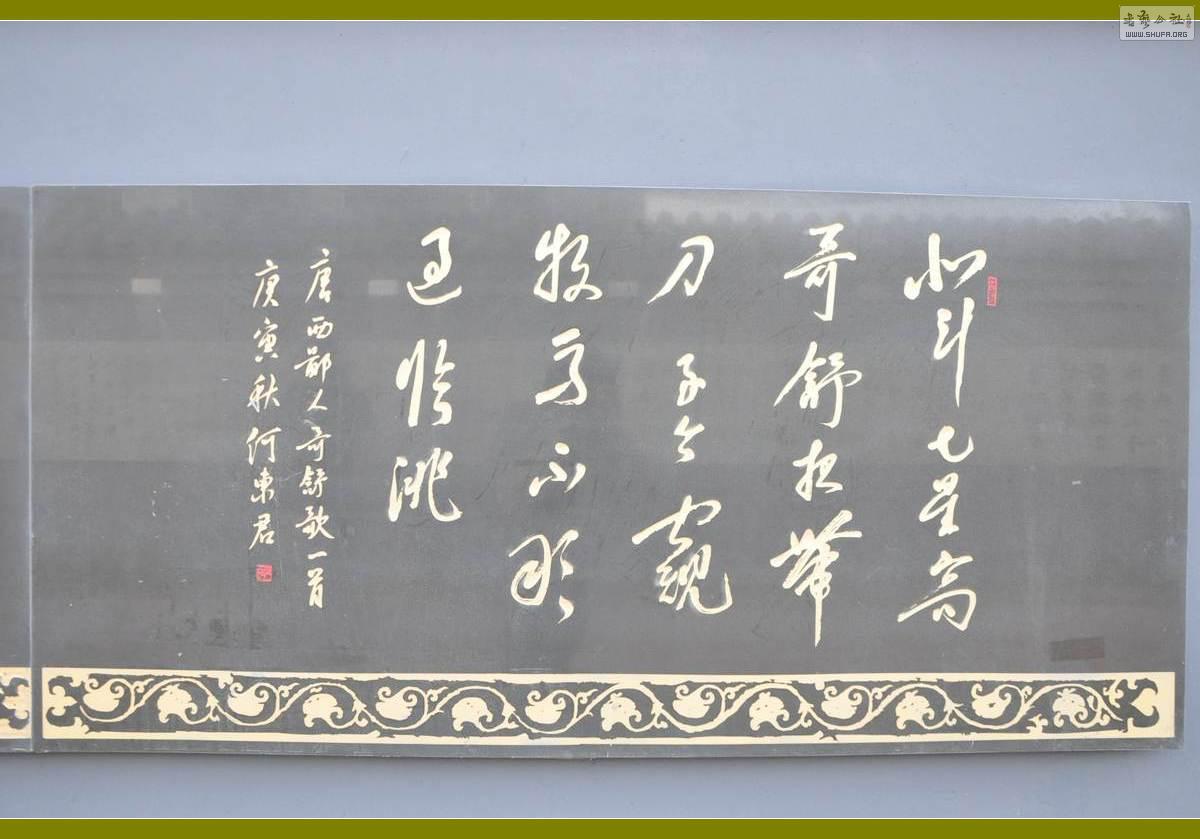 北斗七星高
哥舒夜带
刀至今窥
牧马不敢
过临洮
唐西鄙人哥舒歌一首
庚寅秋何东君
书艺公社
WWW.SHUFA.ORG